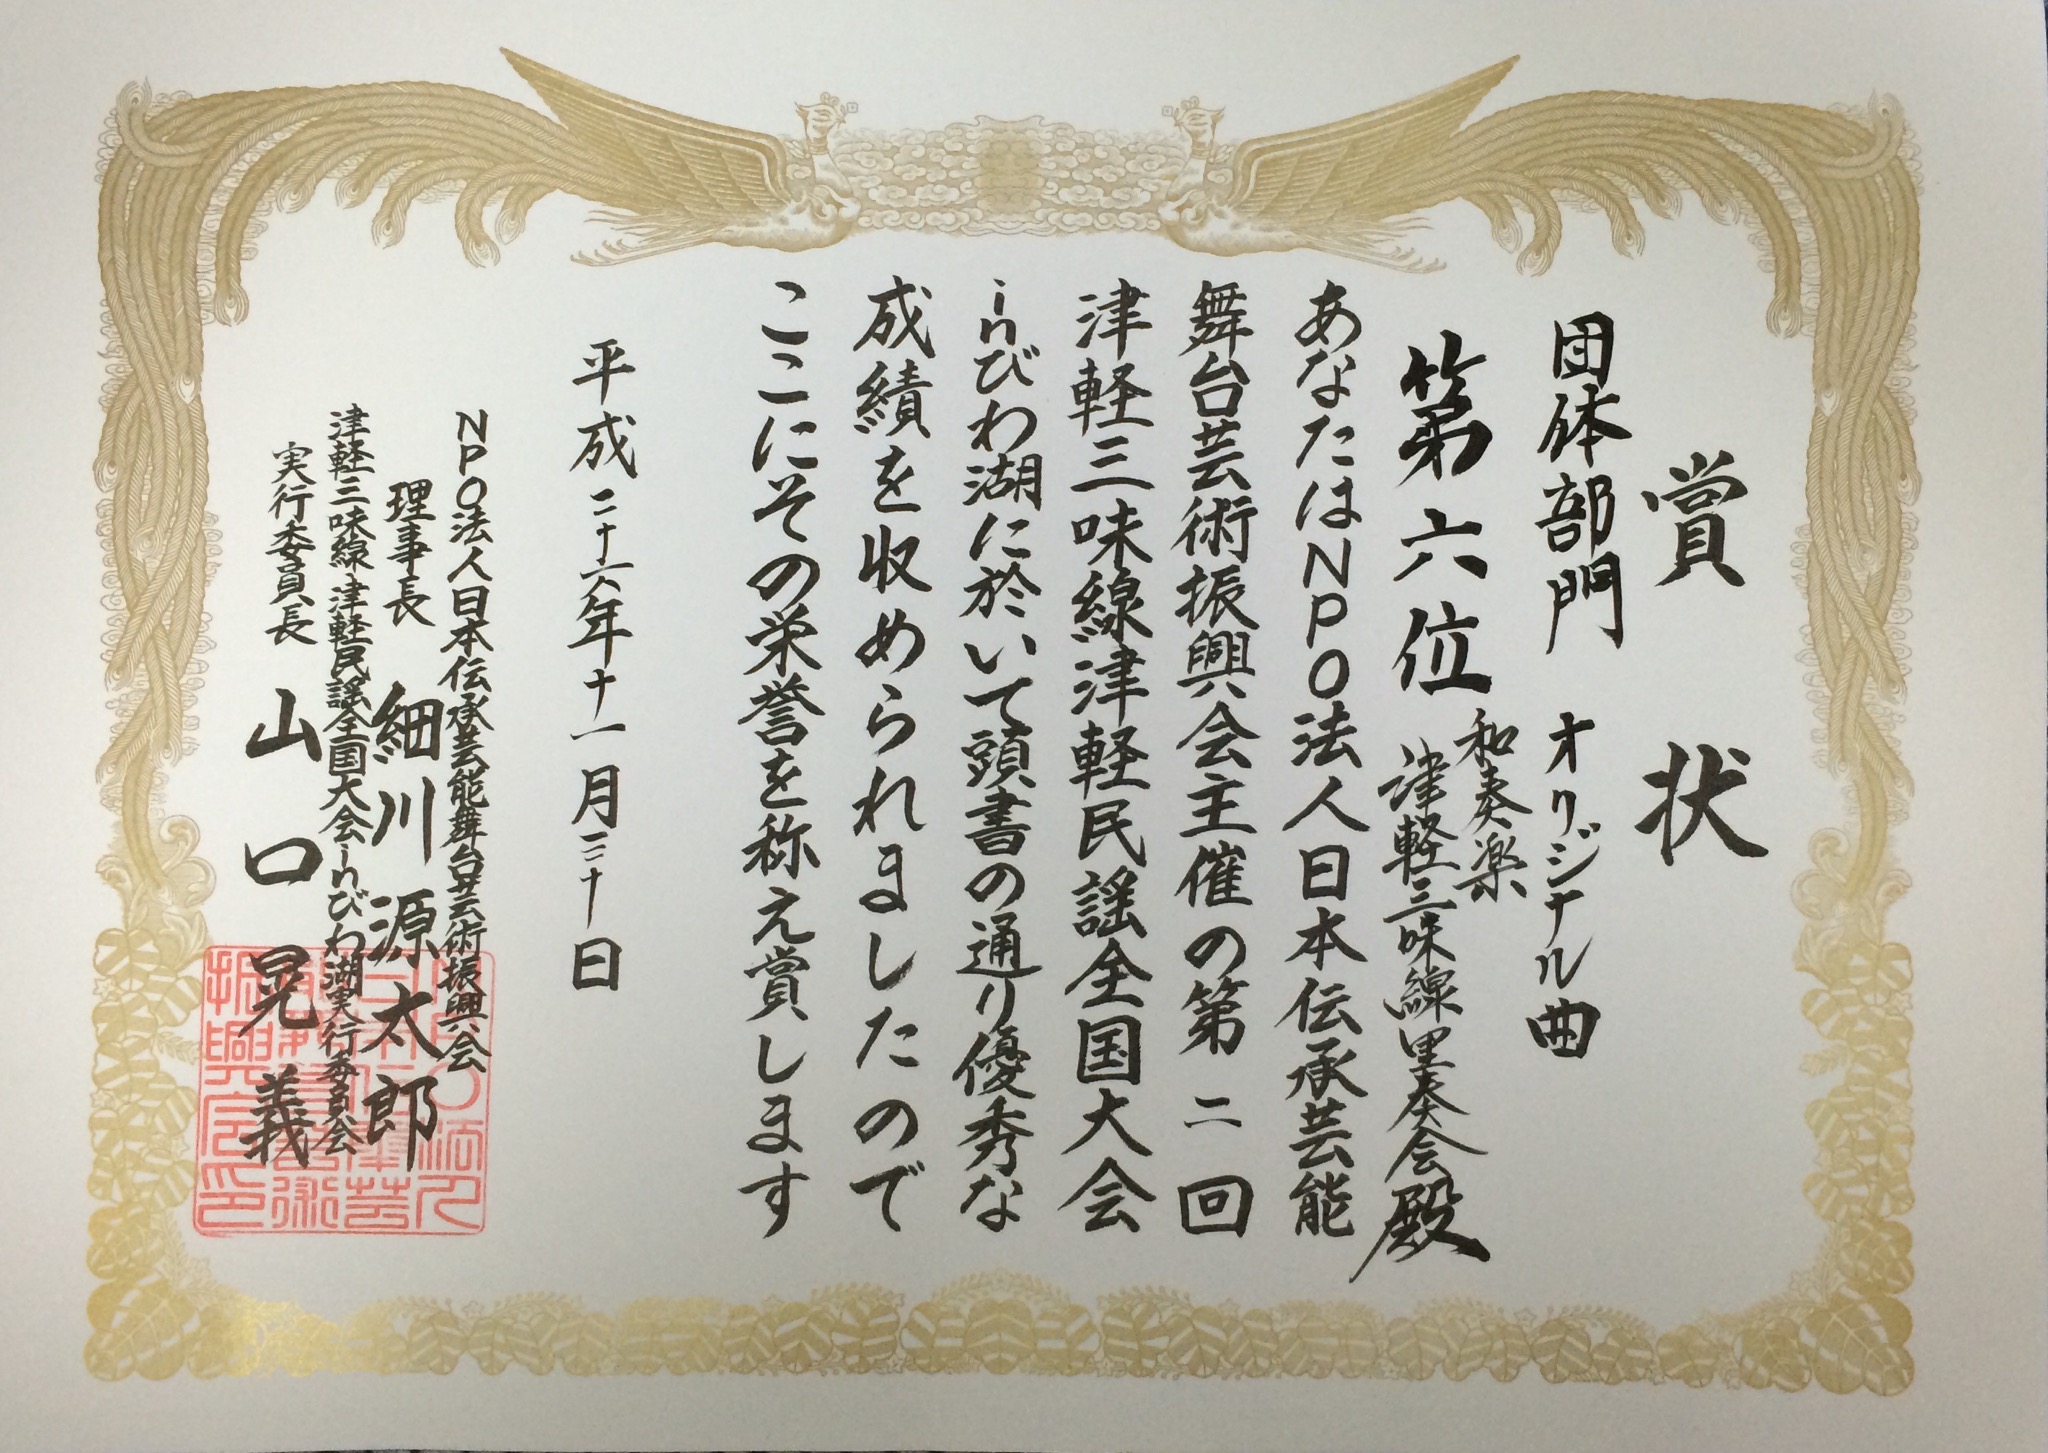 賞状
団体部門 オリジナル曲
第六位
和奏楽
津軽三味線里奏会殿
あなたはNPO法人日本伝承芸能
舞台芸術振興会主催の第二回
津軽三味線津軽民謡全国大会
inびわ湖に於いて頭書の通り優秀な
成績を収められましたので
ここにその栄誉を称え賞します
平成二十六年十一月三十日
NPO法人日本伝承芸能舞台芸術振興会
理事長 細川源太郎
津軽三味線津軽民謡全国大会inびわ湖実行委員会
実行委員長 山口晃義